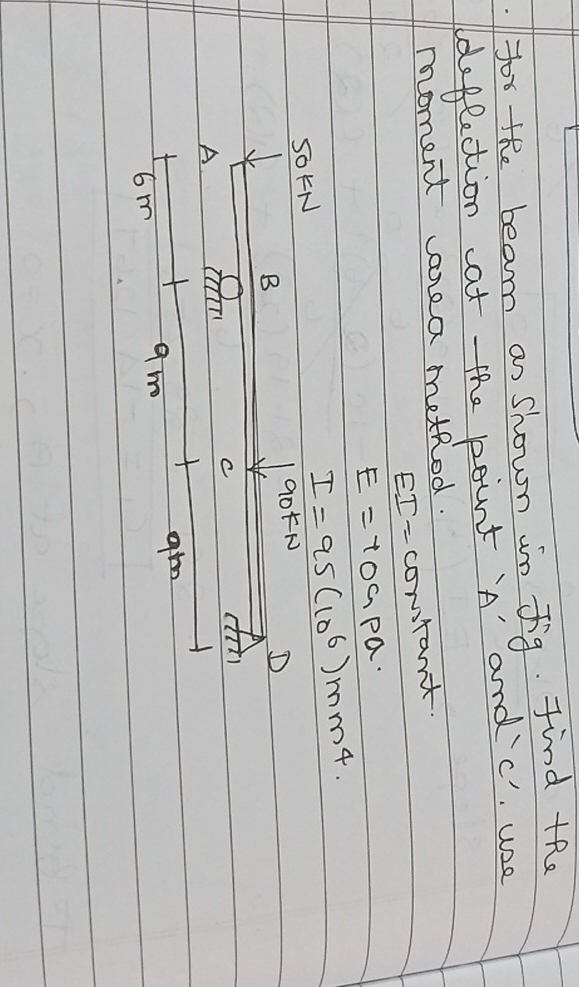 . For the beam as shown in fig. Find the
deflection at the point 'A' and 'C'. use
moment area method.
EI = constant.
E = 70Gpa.
I = 95(10⁶)mm⁴.
50KN
90KN
B
D
A
C
6m
9m
9m